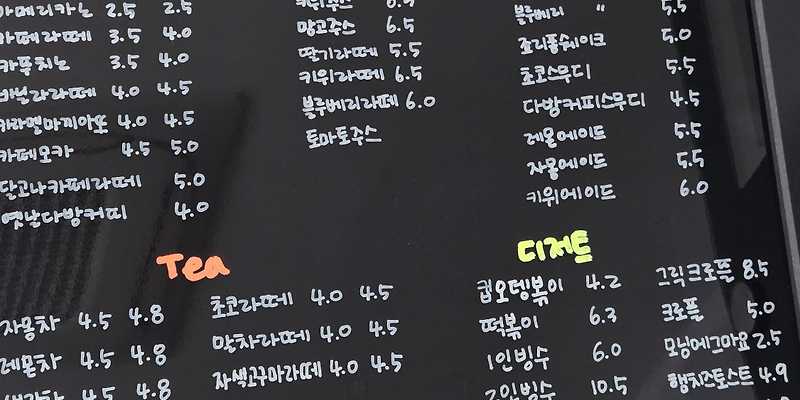 아메리카노 2.5 2.5
카페라떼 3.5 4.0
카푸치노 3.5 4.0
바닐라라떼 4.0 4.5
카라멜마끼아또 4.0 4.5
카페모카 4.5 5.0
달고나카페라떼 5.0
옛날다방커피 4.0
키위주스 6.5
망고주스 6.5
딸기라떼 5.5
키위라떼 6.5
블루베리라떼 6.0
토마토주스
블루베리 " 5.5
죠리퐁쉐이크 5.0
초코스무디 5.5
다방커피스무디 4.5
레몬에이드 5.5
자몽에이드 5.5
키위에이드 6.0
Tea
자몽차 4.5 4.8
레몬차 4.5 4.8
4.5 4.8
초코라떼 4.0 4.5
말차라떼 4.0 4.5
자색고구마라떼 4.0 4.5
디저트
컵오뎅볶이 4.2
떡볶이 6.3
1인빙수 6.0
2인빙수 10.5
그릭크로플 8.5
크로플 5.0
모닝에그마요 2.5
햄치즈토스트 4.9